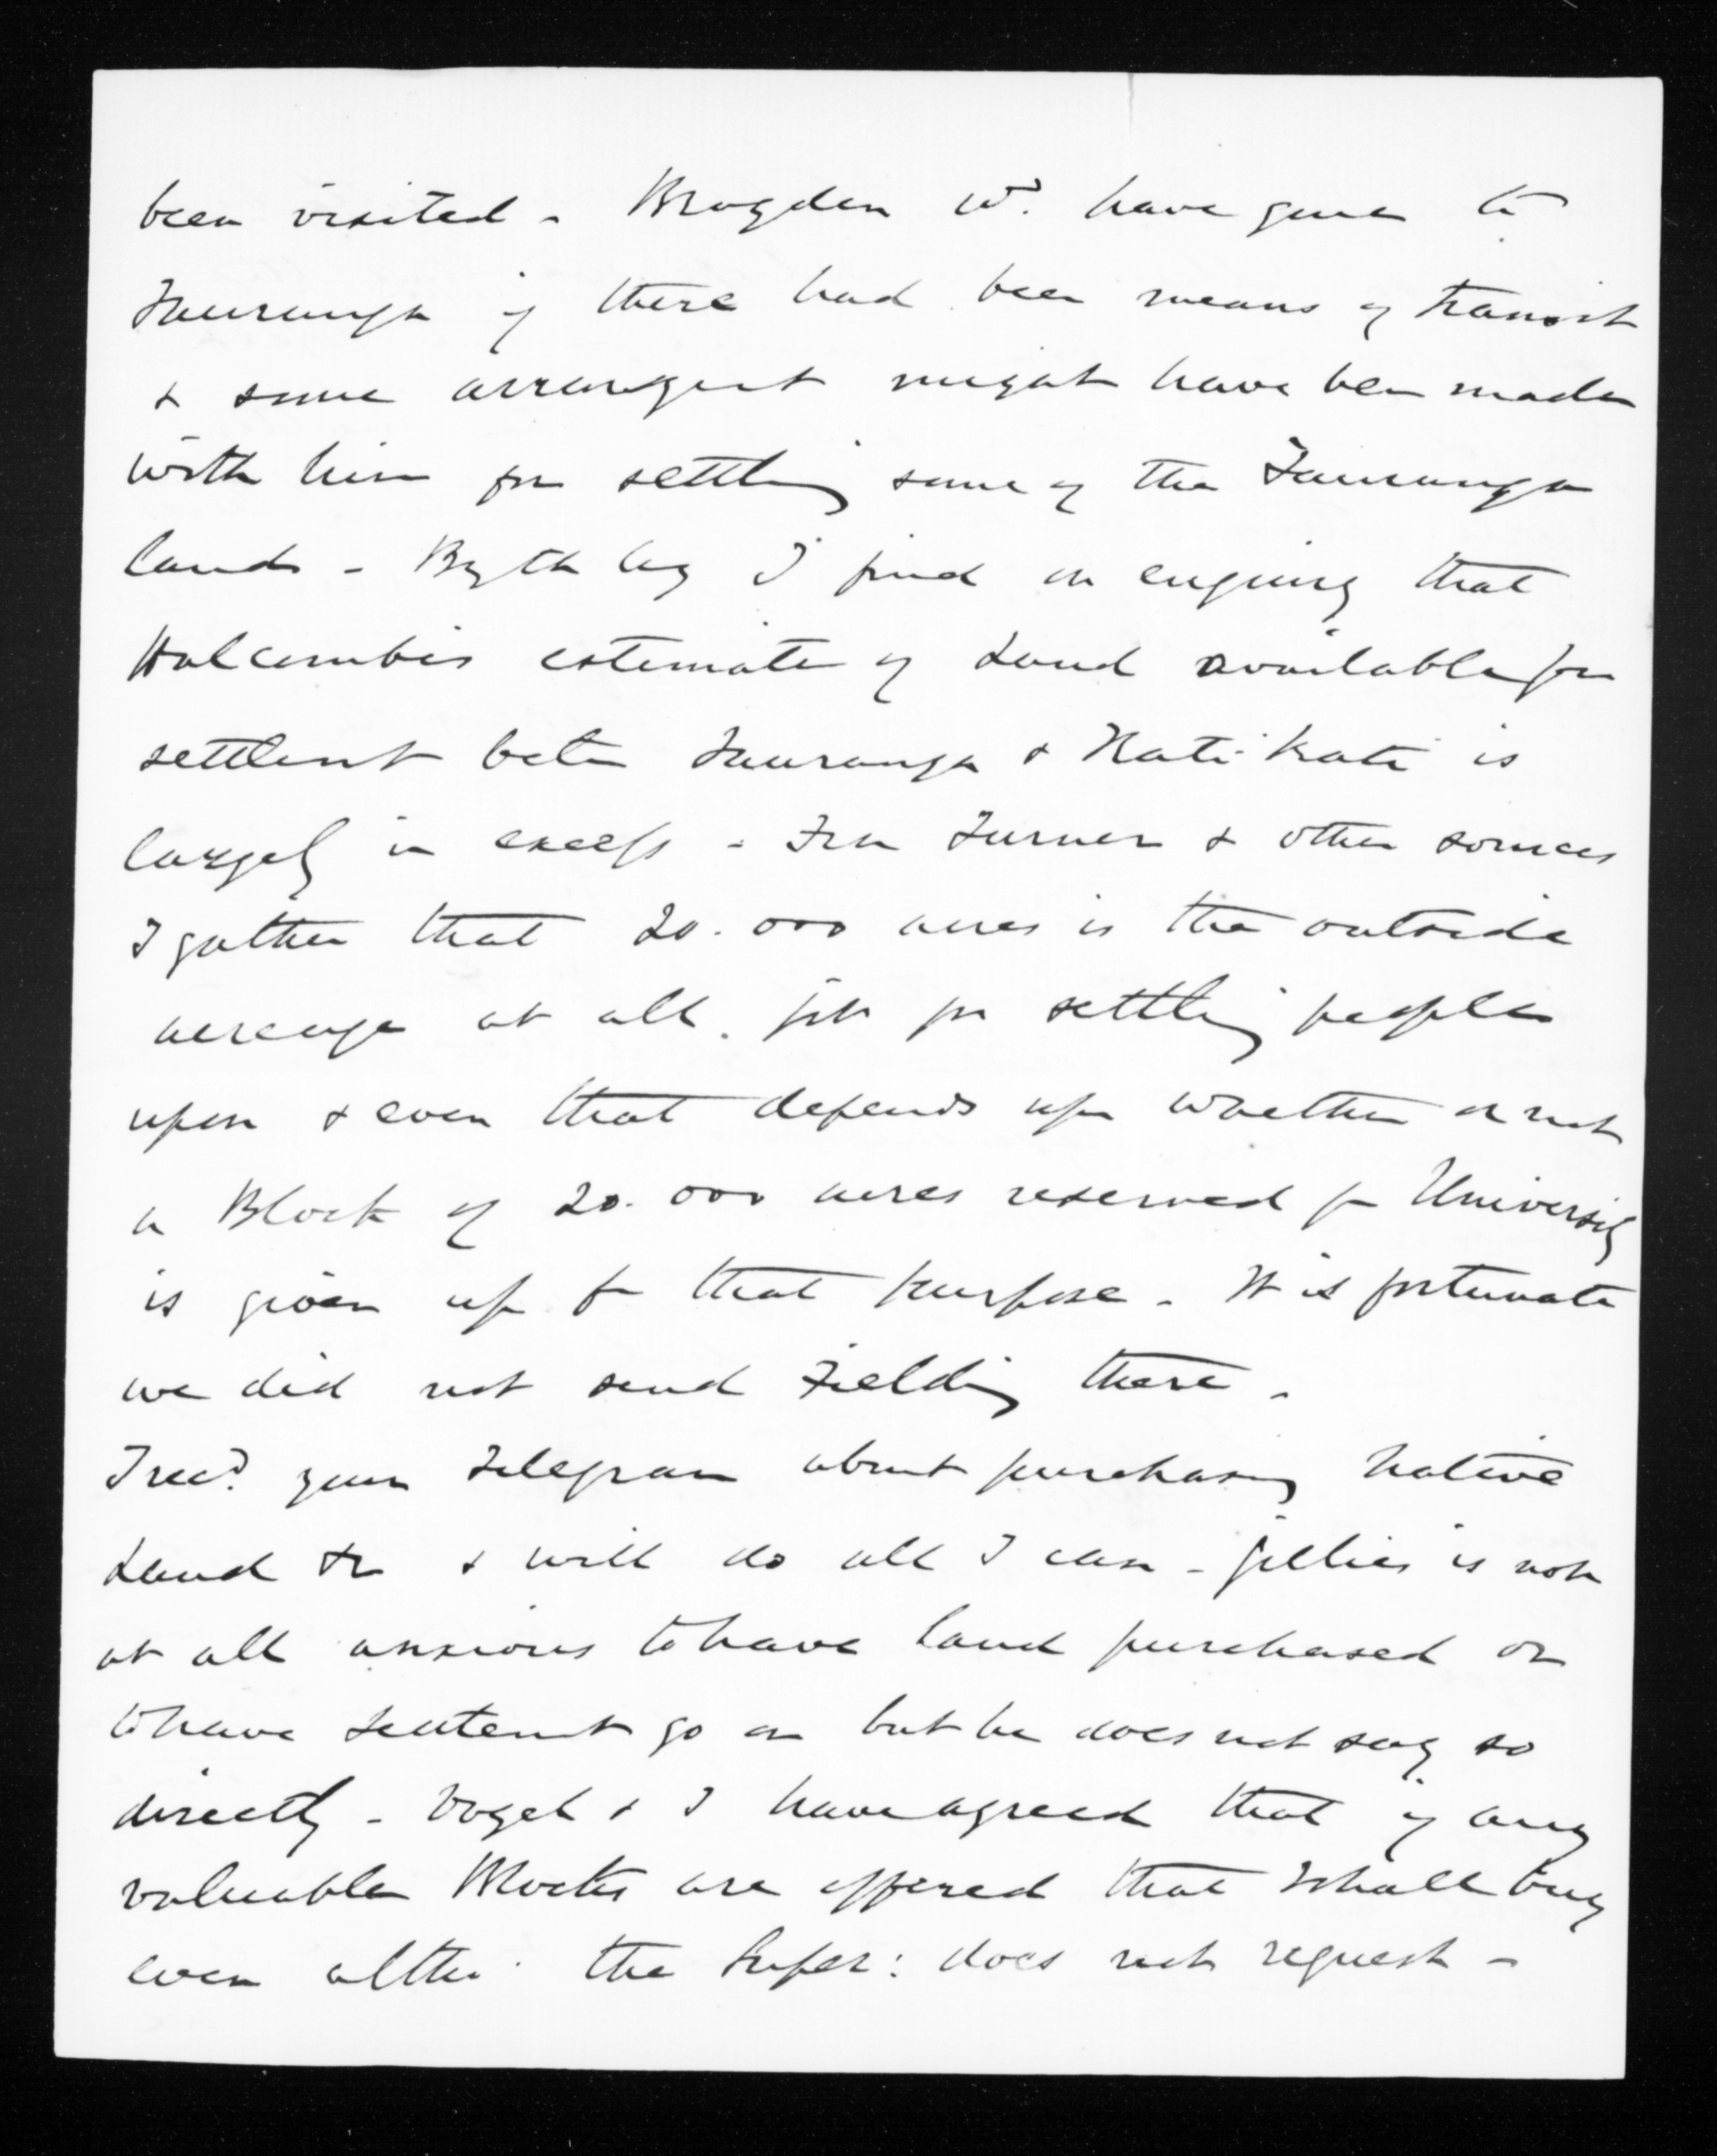 been visited - Brogden wd. have gone to
Tauranga if there had been means of transit
& some arrangent might have been made
with him for settling some of the Tauranga
lands - By the by I find on enquiry that
Halcombe's estimate of Land available for
settlent betn Tauranga & Kati-Kati is
largely in excess - From Turner & other sources
I gather that 20.000 acres is the outside
acreage at all fit for settling people
upon & even that depends upon whether or not
a Block of 20.000 acres reserved for University
is given up for that purpose - It is fortunate
we did not send Fielding there -
I recd. your Telegram about purchasing Native
Land &c & will do all I can - Gillies is not
at all anxious to have land purchased or
to have settlement go on but he does not say so
directly - Vogel & I have agreed that if any
valuable Blocks are offered that I shall buy
even altho' the Super: does not request -